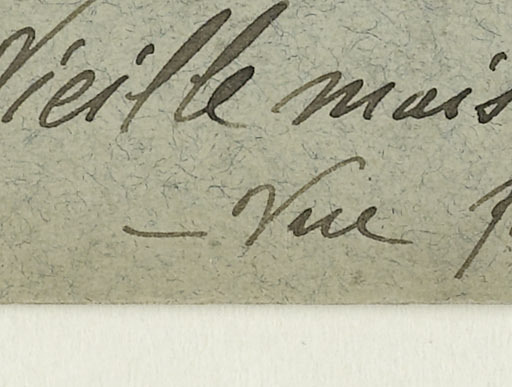 Vieille mais
— Vue